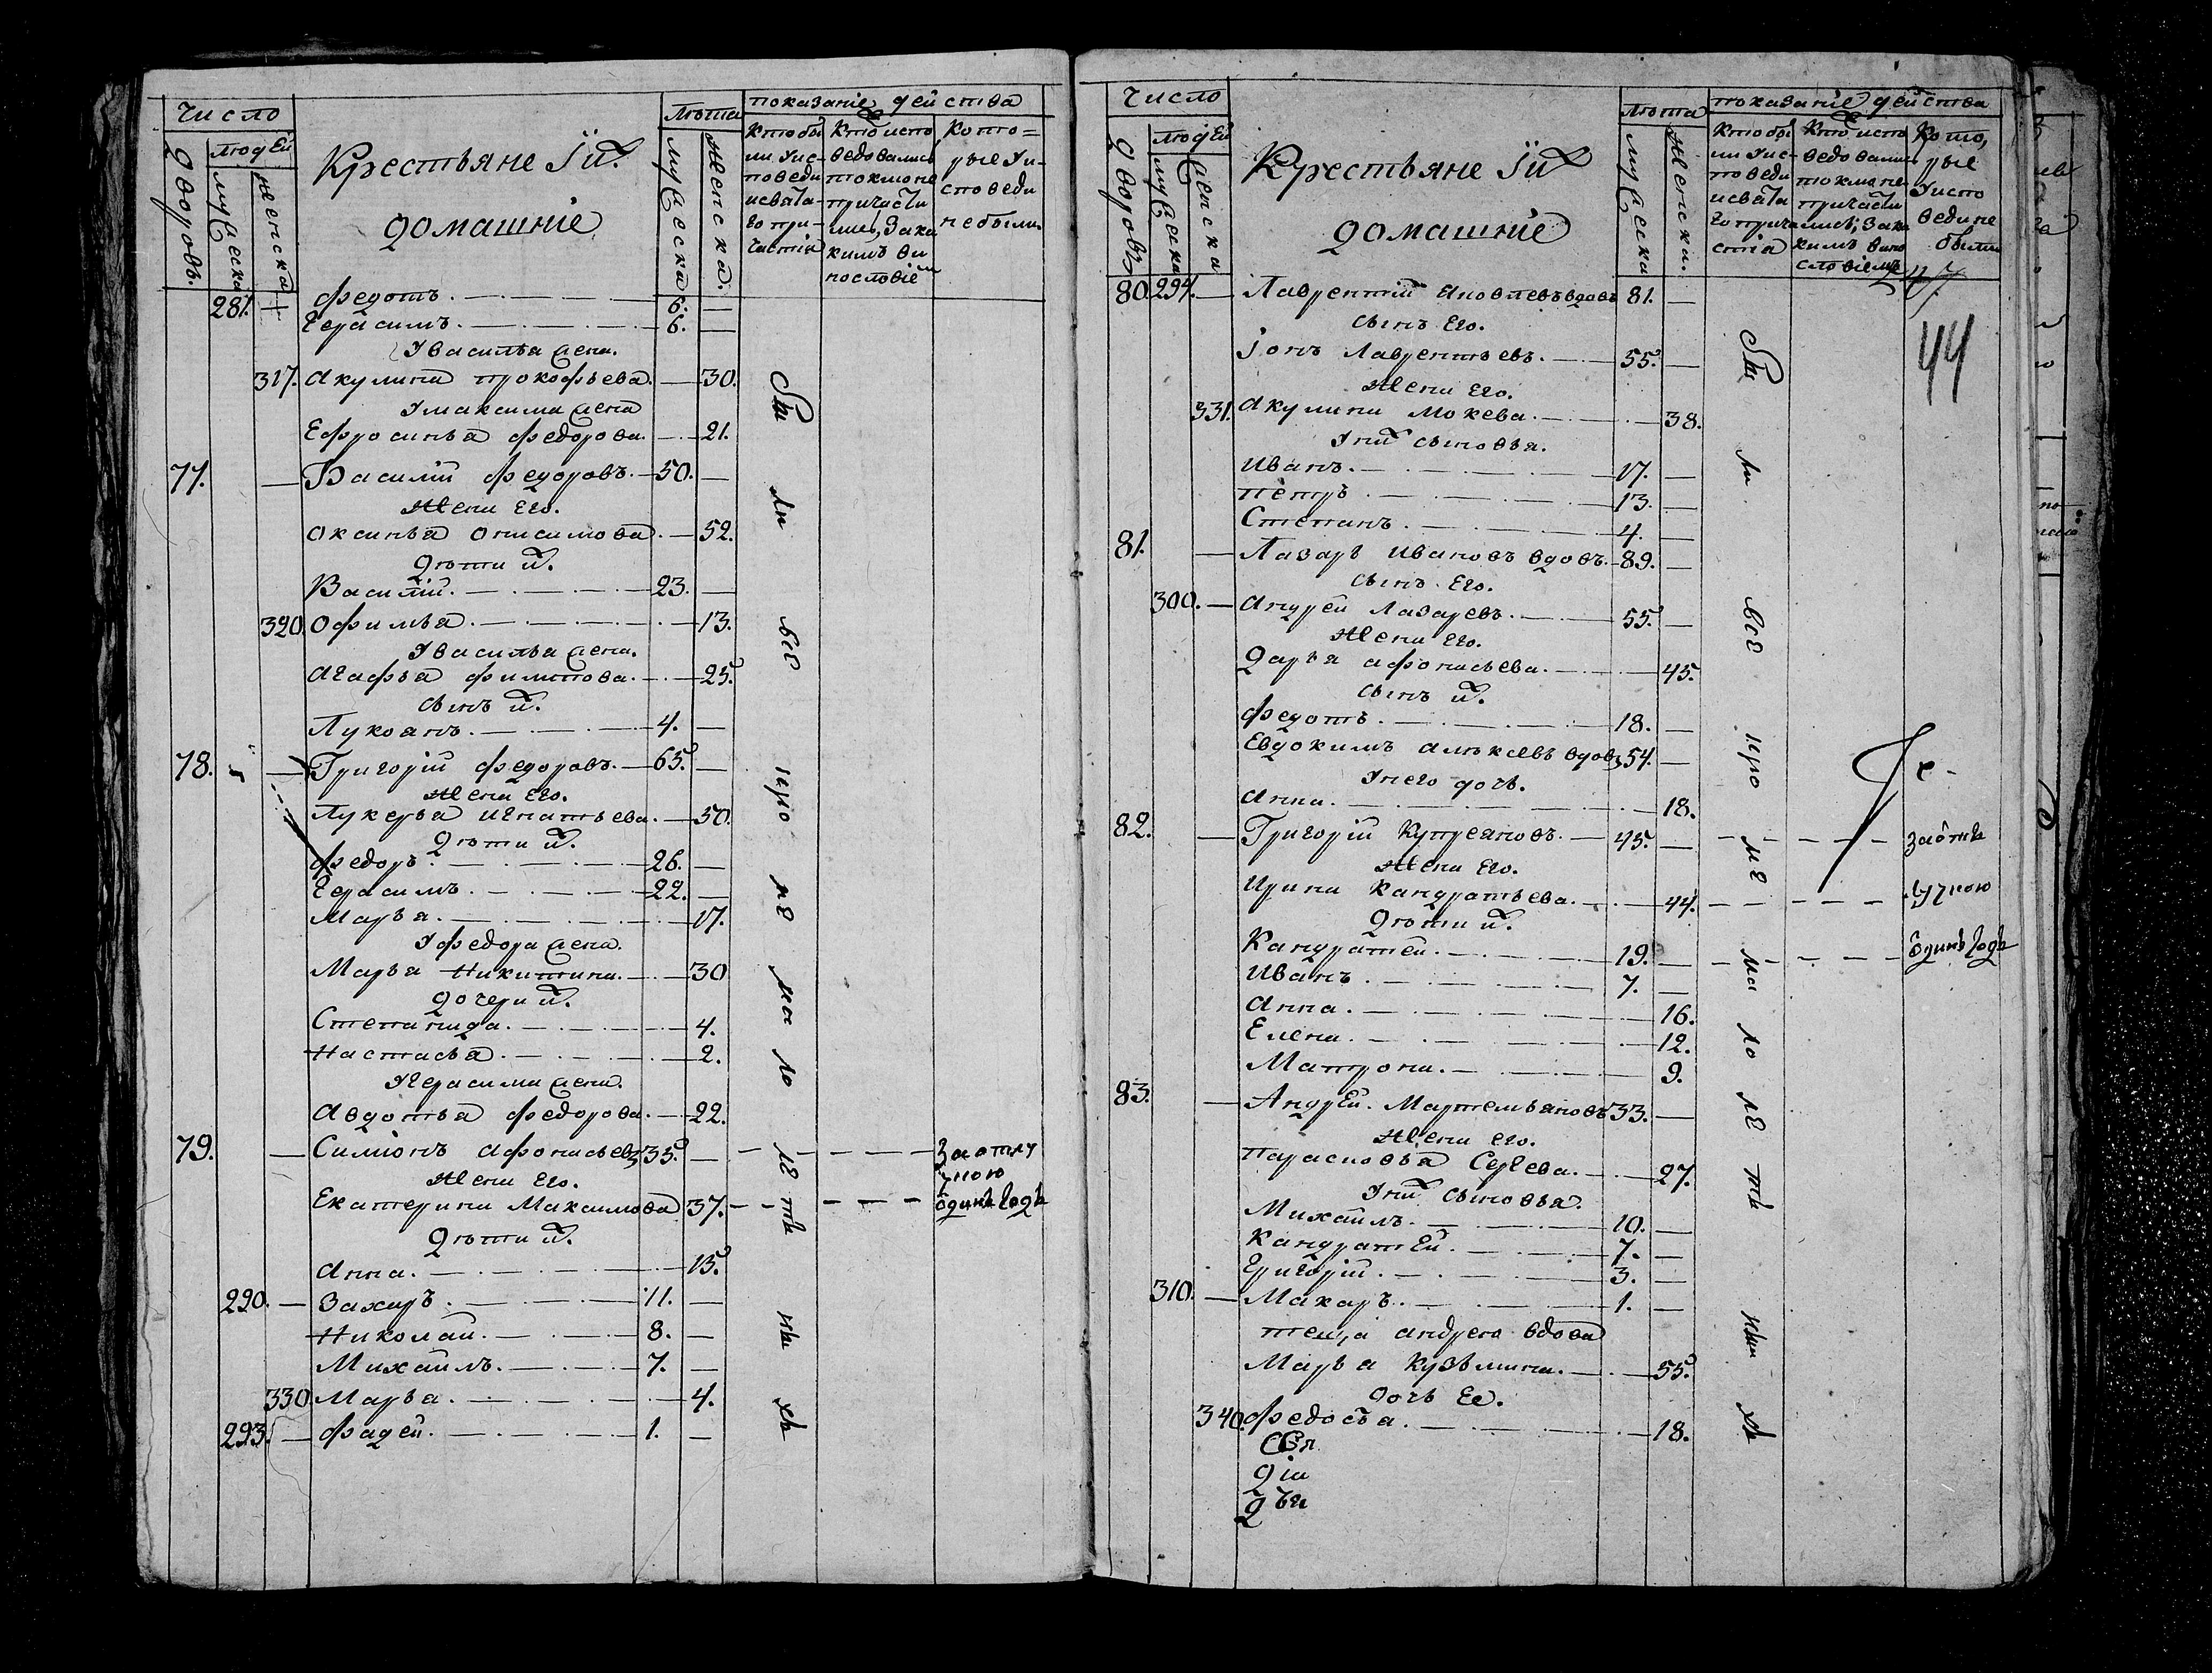 Число
людей
дворовъ.
мужеска
женска
Крестьяне Їихъ
домашніе
Лѣта
мужеска
женска.
показаніе действа
Кто бы
ли У ис-
поведи
и свята-
го при-
частія
Кто испо
ведовались
токмо не
причасти
лись, за ка
кимъ ви
нословіемъ
Кото=
рые У и-
споведи
не были.
Федотъ. 6.
281. Герасимъ. 6.
У василья жена.
317. Акулина прокофьева. 30.
У максима жена
Ефросинья федорова. 21.
77. Василій федоровъ. 50.
Жена Его.
Оксинья онисимова. 52.
Дѣти ихъ.
Василій. 23.
320. Офимья. 13.
У василья жена.
Агафья филипова. 25.
сынъ ихъ.
Лукоянъ. 4.
78. Григорій федоровъ. 65.
Жена Его.
Лукерья игнатьева. 50.
Дѣти ихъ.
Федоръ. 26.
Герасимъ. 22.
Марья. 17.
У федора жена.
Марья Никитина. 30
дочери ихъ.
Степанида. 4.
Настасья. 2.
У герасима жена.
Авдотья федорова. 22.
79. Симіонъ афонасьевъ 35. За отлу
чкою
Жена Его.
Екатерина Максимова 37. одинъ годъ
Дѣти ихъ.
Анна. 15.
290. Захаръ. 11.
Николай. 8.
Михаилъ. 7.
330 Марья. 4.
293. Фадей. 1.
Число
людей
дворовъ
мужеска
женска
Крестьяне Їихъ
домашніе
Лѣта
мужеска
женска.
показаніе действа
Кто бы
ли У ис-
поведи
и свята
го прича
стія
Кто испо
ведовались
токмо не
причасти
лись, за ка
кимъ вино
словіемъ
Кото,
рые
У испо
веди не
были
44
80. 294. Лаврентій Яковлевъ вдовъ 81.
сынъ Его.
Іонъ Лаврентьевъ. 55.
Жена Его.
331. Акулина Мокева. 38.
У нихъ сыновья.
Иванъ. 17.
Петръ. 13.
Степанъ. 4.
81. Лазарь Ивановъ вдовъ. 89.
сынъ Его.
300. Андрей Лазаревъ. 55.
Жена Его.
Дарья афонасьева. 45.
сынъ ихъ.
Федотъ. 18.
Евдокимъ алѣксѣевъ вдовъ 54.
У него дочь.
Анна. 18.
82. Григорій Купреяновъ. 45. за отлу
Жена Его.
Ирина Кандратьева. 44. чкою
Дѣти ихъ.
Кандратей. 19. одинъ годъ
Иванъ. 7.
Анна. 16.
Елена. 12.
Матрона. 9.
83. Андрей Мартемьяновъ 33.
Жена Его.
Парасковья Сергева. 27.
У нихъ сыновья.
Михаилъ. 10.
Кандратей. 7.
Григорій. 3.
310. Макаръ. 1.
теща андрея вдова
Марья Кузьмина. 55.
дочь Ее.
340. Федосья. 18.